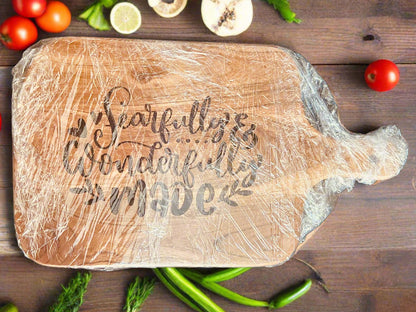 Fearfully &
Wonderfully
MADE